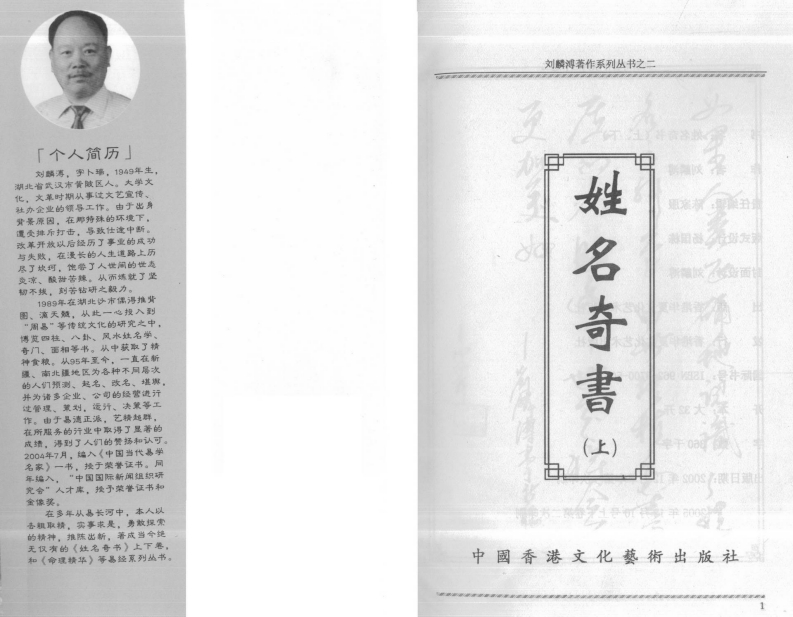 「个人简历」
刘麟溥，字卜瑶，1949年生，
湖北省武汉市黄陂区人。大学文
化，文革时期从事过文艺宣传、
社办企业的领导工作。由于出身
背景原因，在那特殊的环境下，
遭受排斥打击，导致仕途中断。
改革开放以后经历了事业的成功
与失败，在漫长的人生道路上历
尽了坎坷，饱尝了人世间的世态
炎凉、酸甜苦辣。从而炼就了坚
韧不拔，刻苦钻研之毅力。
1989年在湖北沙市偶得推背
图、滴天髓，从此一心投入到
“周易”等传统文化的研究之中，
博览四柱、八卦、风水姓名学、
奇门、面相等书。从中获取了精
神食粮。从95年至今，一直在新
疆、南北疆地区为各种不同层次
的人们预测、起名、改名、堪舆，
并为诸多企业、公司的经营进行
过管理、策划、运行、决策等工
作。由于易德正派，艺精超群，
在所服务的行业中取得了显著的
成绩，得到了人们的赞扬和认可。
2004年7月，编入《中国当代易学
名家》一书，授予荣誉证书。同
年编入，“中国国际新闻组织研
究会”人才库，授予荣誉证书和
金像奖。
在多年从易长河中，本人以
各粗取精，实事求是，勇敢探索
的精神，推陈出新，著成当今绝
无仅有的《姓名奇书》上下卷，
和《命理精华》等易经系列丛书。
刘麟溥著作系列丛书之二
姓名奇書
（上）
中國香港文化藝術出版社
1